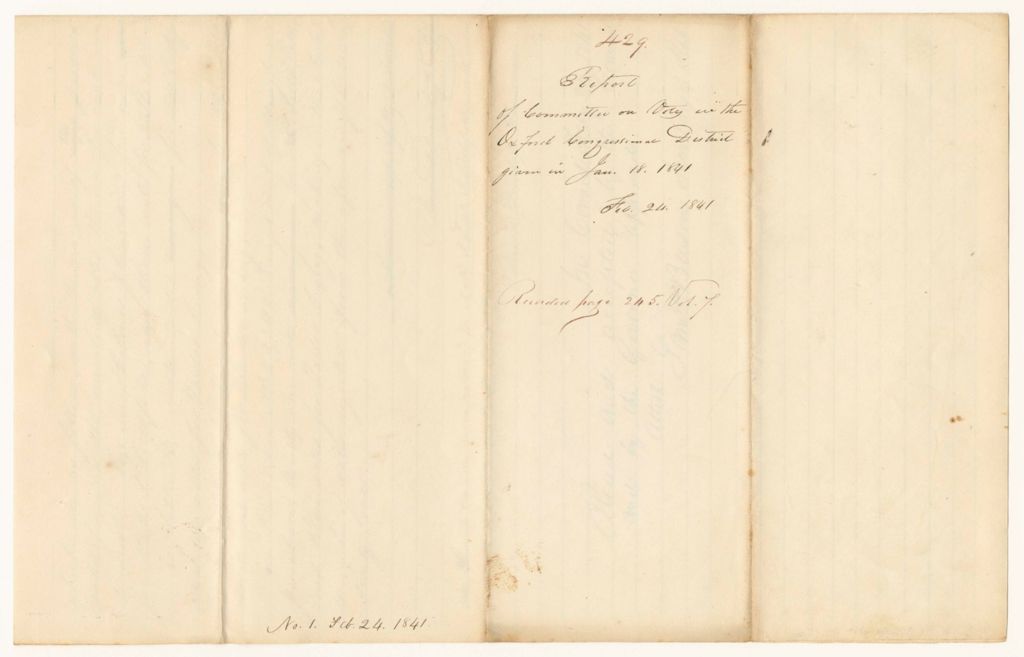 429.
Report
of Committee on Votes in the
Oxford Congressional District
given in Jan. 18. 1841
Feb. 24. 1841
Recorded page 245. Vol. 7.
No. 1. Feb. 24. 1841.